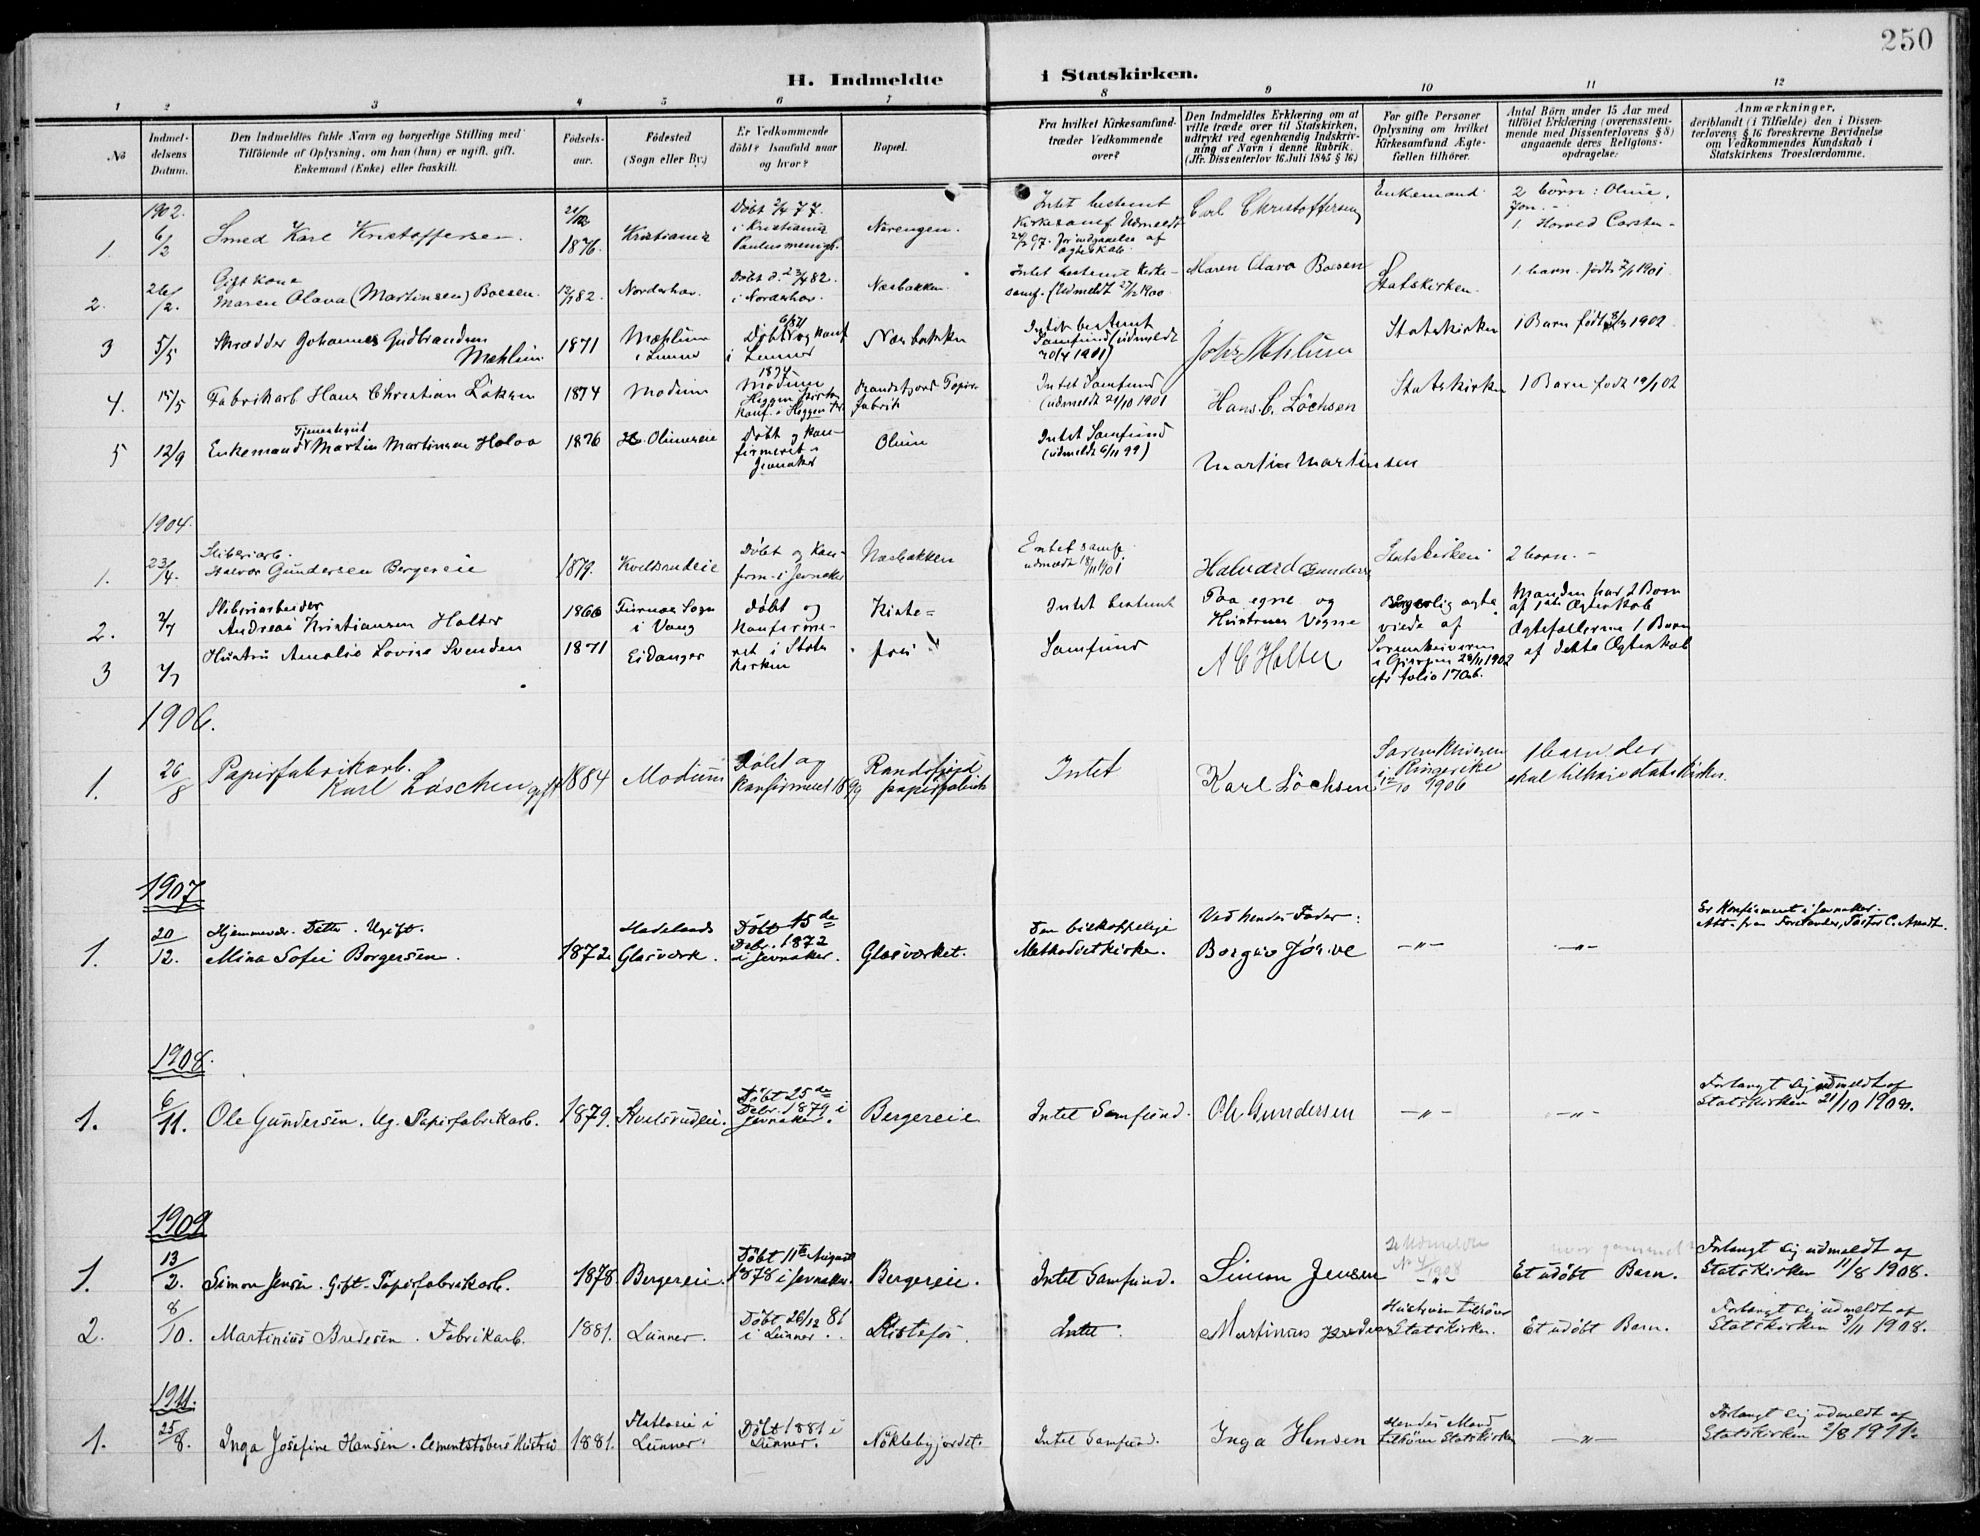 250
H. Indmeldte i Statskirken.
1 2 3 4 5 6 7 8 9 10 11 12
No
Indmeldelsens Datum.
Den Indmeldtes fulde Navn og borgerlige Stilling med
Tilföiende af Oplysning, om han (hun) er ugift, gift,
Enkemand (Enke) eller fraskilt.
Födselsaar.
Födested
(Sogn eller By.)
Er Vedkommende
döbt? Isaafald naar
og hvor?
Bopæl.
Fra hvilket Kirkesamfund
træder Vedkommende
over?
Den Indmeldtes Erklæring om at
ville træde over til Statskirken,
udtrykt ved egenhændig Indskrivning
af Navn i denne Rubrik.
(Jfr. Dissenterlov 16 Juli 1845 § 16.)
For gifte Personer
Oplysning om hvilket
Kirkesamfund Ægtefællen
tilhörer.
Antal Börn under 15 Aar med
tilföiet Erklæring (overensstemmende
med Dissenterlovens § 8)
angaaende deres Religionsopdragelse:
Anmærkninger,
deriblandt (i Tilfælde) den i Dissenterlovens
§ 16 foreskrevne Bevidnelse
om Vedkommendes Kundskab i
Statskirkens Troeslærdomme.
1902.
1. 6/2 Smed Karl Kristoffersen. 1876. Kristiania Döbt 2/4 77. i Kristiania Paulusmenigh. Nærengen. Intet bestemt Kirkesamf. Udmeldt for indgaaelse af ægteskab. Carl Christoffersen Enkemand 2 börn: Oline, 1 Harald Carsten
2. 26/2. Gift Kone Maren Olava (Martinsen) Boesen. 82. Norderhov. Döbt d. 23/4 82. i Norderhov. Næsbakken. Intet bestemt Kirkesamf. (Udmeldt 27/12 1900. Maren Olava Boesen Statskirken. 1 barn. födt 1901
3 5/5 Skrædder Johannes Gudbrandsen Mæhlum 1871 Mæhlum i Lunner Döbt og konf i Lunner Næsbakken Intet bestemt Samfund (udmeldt 20/4 1901) Johs Mehlum Statskirken 1 Barn födt 1902
4. 15/5 Fabrikarb Hans Christian Löksen 1874 Modum 1874 Modum Heggen Kirke Konf. i Heggen Randsfjord Papirfabrik Intet Samfund (udmeldt 21/10 1901 Hans C. Löchsen Statskirken 1 Barn födt 19/1 02
5 12/9 Enkemand Tjenestegut Martin Martinsen Holoa 1876 Olimseie Döbt og konfirmeret i Jevnaker Olum Intet Samfund (udmeldt 6/11 99) Martin Martinsen
1904.
1. 23/4. Sliberiarb. Halvor Gundersen Bergereie 1877. Kvelsrudeie Döbt og konfirm. i Jevnaker Næsbakken Intet samf. udmeldt 18/11 01 Halvard Gunders Statskirken 2 börn.
2. 2/7 Sliberiarbeider Andreas Kristiansen Holter 1866 Furnæs Sogn i Vang Döbt og konfirme- Kiste- Intet bestemt Paa egne og Hustrues Vegne Borgerlig ægteviede af Manden har 2 Börn af 1ste Ægteskab
3 4/7 Hustru Amalie Lovise Svendsen 1871 Eidanger ret i Stats Kirken fos Samfund A C Holter Sorenskriveren i Gjerpen 28/11 1902 cfr folio 170 b. Ægtefællerne 1 Barn af dette Ægteskab
1906.
1. 26/8 Papirfabrikarb. Karl Löschen gift 1884 Modum Döbt og konfirmeret 1899 Randsfjord papirfabrik Intet Karl Löchsen Sorenskriveren i Ringerike 12/10 1906 1 barn der skal tilhöre statskirken.
1907
1. 20/12. Hjemmevær. Datter. Ugift. Mina Sofie Borgersen. 1872. Hadelands Glasværk. Döbt 15de Debr. 1872 i Jevnaker. Glasværket. Den biskoppelige Methodistkirke. Ved hendes Fader: Borger Jör.ve —"— —"— Er Konfirmeret i Jevnaker. Att. fra Forstander, Pastor C. Arndt.
1908.
1. 6/11. Ole Gundersen. Ug. Papirfabrikarb. 1879. Kvelsrudeie. Döbt 25de Debr. 1879 i Jevnaker. Bergereie Intet Samfund. Ole Gundersen —"— —"— Forlangt sig udmeldt af Statskirken 21/10 1908.
1909
1. 13/2. Simon Jensen. Gift. Papirfabrikarb. 1878. Bergereie. Döbt 11te August 1878 i Jevnaker. Bergereie. Intet Samfund. Simon Jensen Se Udmeldte No 1/1908 —"— Et udöbt Barn. Forlangt sig udmeldt af Statskirken 11/8 1908.
2. 8/10. Martinius Bredesen. Fabrikarb. 1881. Lunner. Döbt 26/12 81 i Lunner. Kistefos. Intet. Martinius Hustruen tilhörer Statskirken. Et udöbt Barn. Forlangt sig udmeldt af Statskirken 3/11 1908.
1911.
1. 25/8. Inga Josefine Hansen. Cementstöbers Hustru 1881. Flatlaeie i Lunner. Döbt 1881 i Lunner. Nöklebyjordet. Intet Samfund. Inga Hansen Hendes Mand tilhörer Statskirken —"— Forlangt sig udmeldt af Statskirken 2/8 1911.